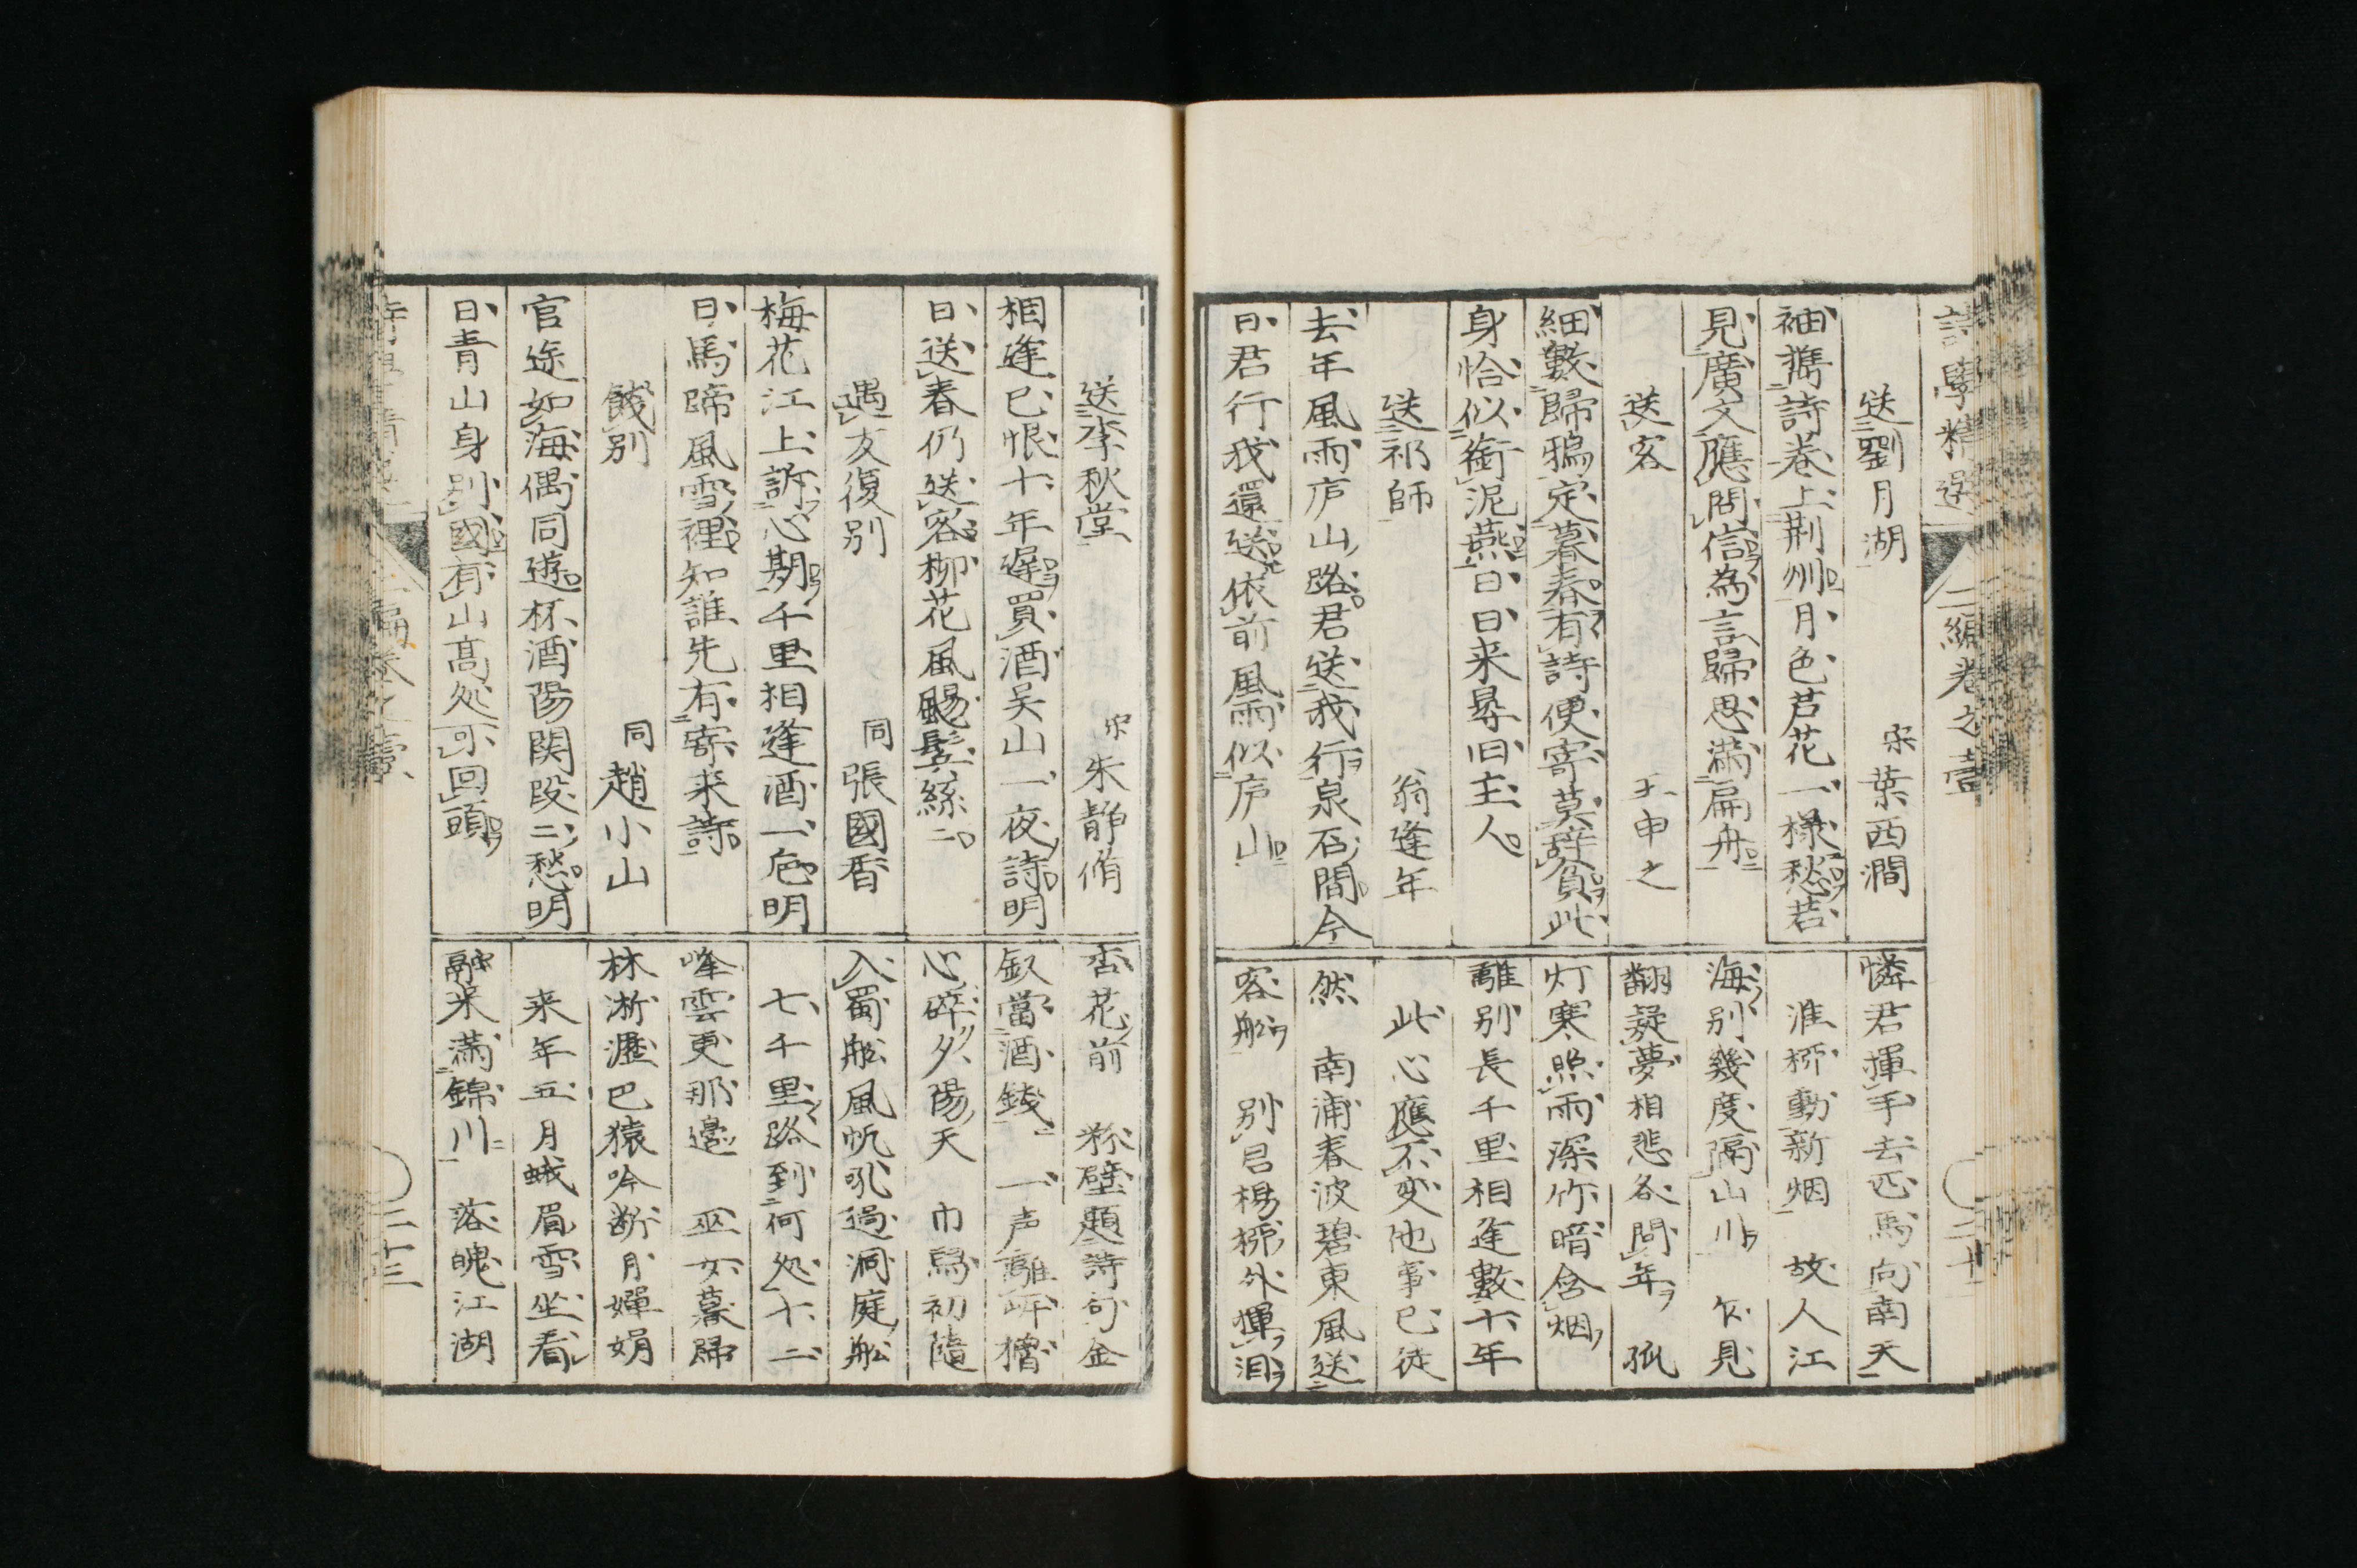 詩學精選 二編卷之壹
送劉月湖 宋葉西澗
袖携詩卷上荆州月色芦花一様愁若
見廣文應問信為言歸思満扁舟
送客 王申之
細數歸鴉定暮春有詩便寄莫辞貧此
身恰似銜泥燕日日来尋旧主人
送祁師 翁逢年
去年風雨庐山路君送我行泉石間今
日君行我還送依前風雨似庐山
憐君揮手去匹馬向南天
淮栁動新烟 故人江
海別幾度隔山川 乍見
翻疑夢相悲各問年 孤
灯寒照雨深竹暗含烟
離別長千里相逢數十年
此心應不变他事已徒
然 南浦春波碧東風送
客船 別君楊栁外揮泪
送李秋堂 宋朱静脩
相逢已恨十年遲買酒吴山一夜詩明
日送春仍送客柳花風颺鬂絲二
遇友復別 同張國香
梅花江上訴心期千里相逢酒一卮明
日馬蹄風雪裡知誰先有寄来詩
餞別 同趙小山
官途如海偶同遊杯酒陽関段二愁明
日青山身別國有山髙処可回頭
杏花前 粉壁題詩句金
釵當酒錢 一声離岸櫓
心碎夕陽天 巾舄初隨
入蜀船風帆吼過洞庭船
七千里路到何処十二
峰雲更那邉 巫女暮歸
林淅瀝巴猿吟断月嬋娟
来年五月峨眉雪坐看
融来满錦川 落魄江湖
二十三